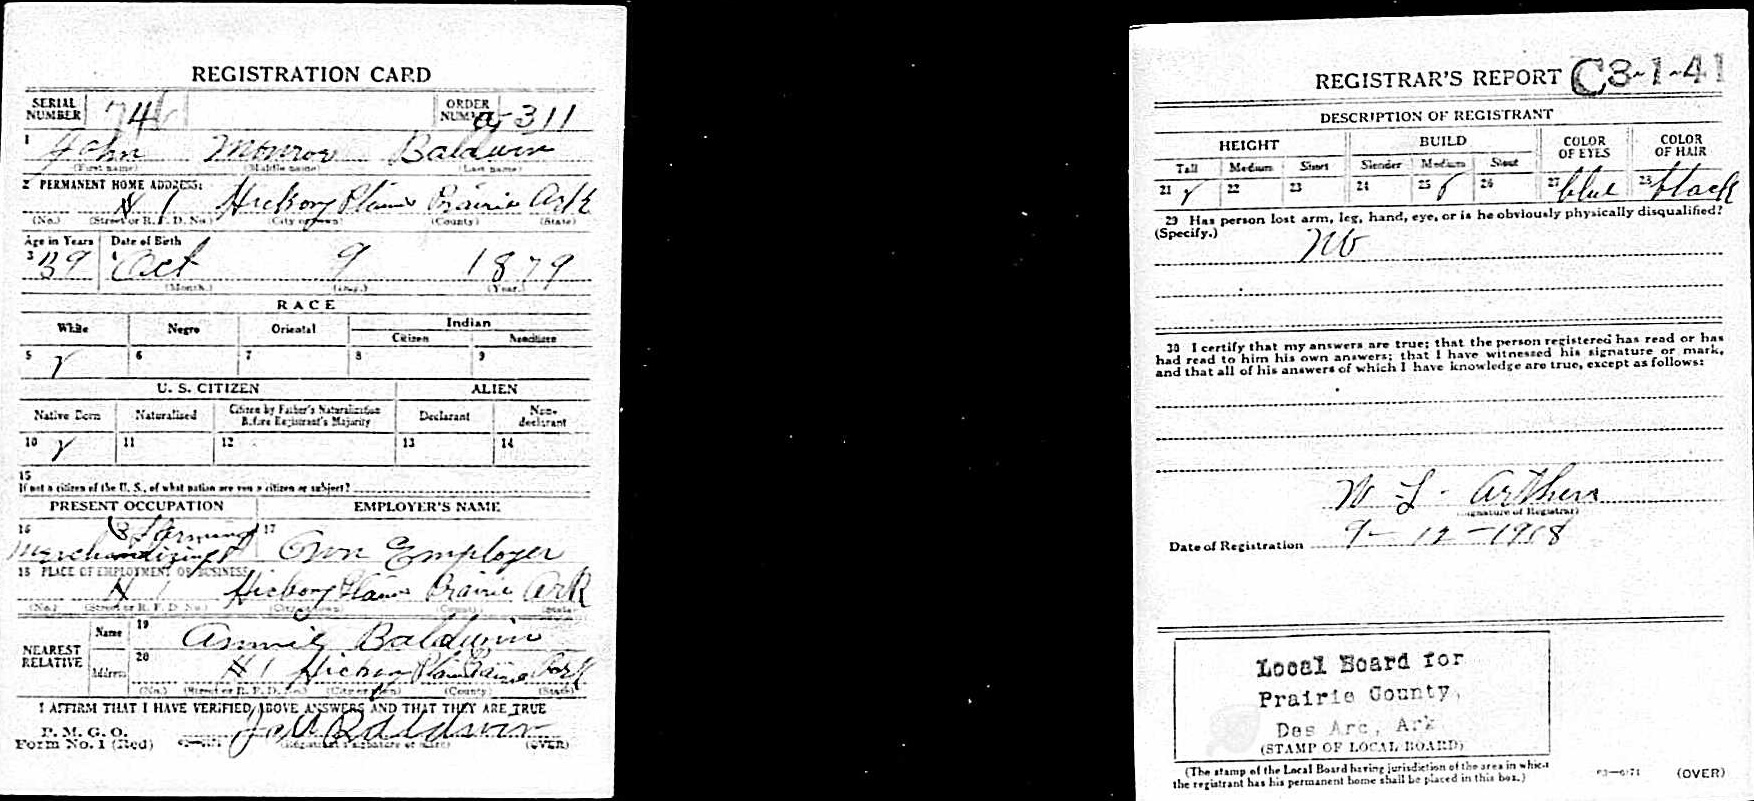 REGISTRATION CARD
SERIAL NUMBER 746 ORDER NUMBER A 311
1 John Monroe Baldwin
(First name) (Middle name) (Last name)
2 PERMANENT HOME ADDRESS:
# 1 Hickory Plains Prairie Ark
(No.) (Street or R. F. D. No.) (City or town) (County) (State)
Age in Years Date of Birth
3 39 4 Oct 9 1879
(Month.) (Day.) (Year.)
RACE
White Negro Oriental Indian
Citizen Noncitizen
5 6 7 8 9
U. S. CITIZEN ALIEN
Native Born Naturalized Citizen by Father's Naturalization Before Registrant's Majority Declarant Non-declarant
10 11 12 13 14
15
If not a citizen of the U. S., of what nation are you a citizen or subject?
PRESENT OCCUPATION EMPLOYER'S NAME
16 Merchandizing & Farming 17 Own Employer
18 PLACE OF EMPLOYMENT OR BUSINESS:
# 1 Hickory Plains Prairie Ark
(No.) (Street or R. F. D. No.) (City or town) (County) (State)
NEAREST RELATIVE Name 19 Annie Baldwin
Address 20 # 1 Hickory Plains Prairie Ark
(No.) (Street or R. F. D. No.) (City or town) (County) (State)
I AFFIRM THAT I HAVE VERIFIED ABOVE ANSWERS AND THAT THEY ARE TRUE
P. M. G. O.
Form No. 1 (Red) J M Baldwin
(Registrant's signature or mark) (OVER)
REGISTRAR'S REPORT C3-1-41
DESCRIPTION OF REGISTRANT
HEIGHT BUILD COLOR OF EYES COLOR OF HAIR
Tall Medium Short Slender Medium Stout
21 22 23 24 25 26 27 blue 28 black
29 Has person lost arm, leg, hand, eye, or is he obviously physically disqualified?
(Specify.) No
30 I certify that my answers are true; that the person registered has read or has
had read to him his own answers; that I have witnessed his signature or mark,
and that all of his answers of which I have knowledge are true, except as follows:
W L. Arthers
(Signature of Registrar)
Date of Registration 9-12-1918
Local Board for
Prairie County,
Des Arc, Ark.
(STAMP OF LOCAL BOARD)
(The stamp of the Local Board having jurisdiction of the area in which
the registrant has his permanent home shall be placed in this box.)
03—6171 (OVER)